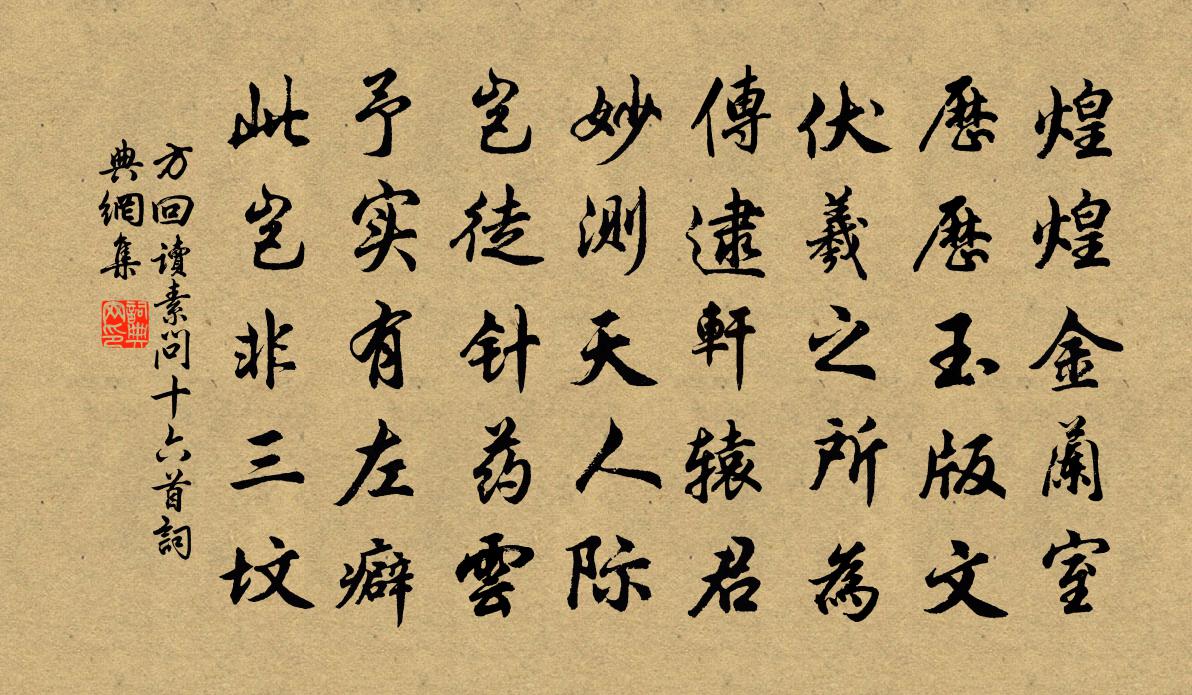 煌煌金蘭室
歷歷玉版文
伏羲之所為
傳逮軒辕君
妙测天人际
岂徒针药雲
予实有左癖
此岂非三坟
方回讀素問十六首詞
典網集
詞典網印